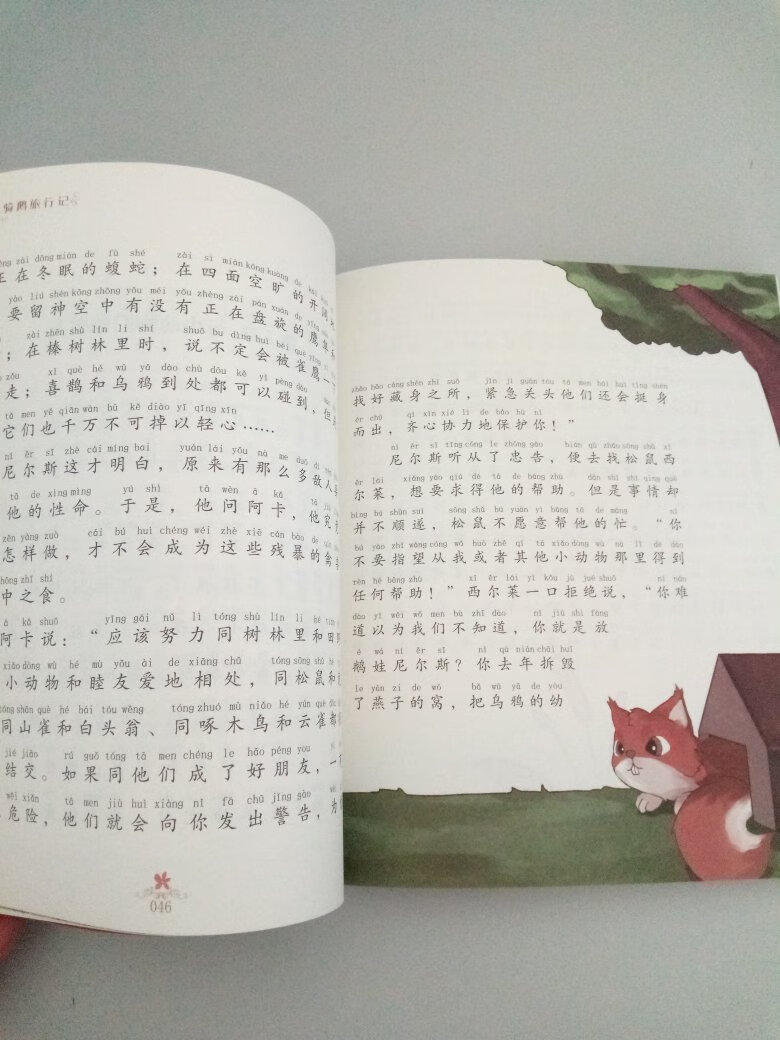 骑鹅旅行记
zài dōng mián de fù shé zài sì miàn kōng kuàng de
正在冬眠的蝮蛇；在四面空旷的开阔
yào liú shén kōng zhōng yǒu méi yǒu zhèng zài pán xuán de yīng
要留神空中有没有正在盘旋的鹰隼和
zài zhēn shù lín lǐ shí shuō bu dìng huì bèi què yīng
；在榛树林里时，说不定会被雀鹰一下
zǒu xǐ què hé wū yā dào chù dōu kě yǐ pèng dào
走；喜鹊和乌鸦到处都可以碰到，但
tā men yě qiān wàn bù kě diào yǐ qīng xīn
它们也千万不可掉以轻心……
ní ěr sī zhè cái míng bai yuán lái yǒu nà me duō dí rén
尼尔斯这才明白，原来有那么多敌人
tā de xìng mìng yú shì tā wèn ā kǎ tā jiū
他的性命。于是，他问阿卡，他究
zěn yàng zuò cái bú huì chéng wéi zhè xiē cán bào de qín
怎样做，才不会成为这些残暴的禽
zhōng zhī shí
中之食。
ā kǎ shuō yīng gāi nǔ lì tóng shù lín lǐ hé tián
阿卡说：“应该努力同树林里和田
xiǎo dòng wù hé mù yǒu ài de xiāng chǔ tóng sōng shǔ hé
小动物和睦友爱地相处，同松鼠和
tóng shān què hé bái tóu wēng tóng zhuó mù niǎo hé yún què dōu
同山雀和白头翁、同啄木鸟和云雀都
jié jiāo rú guǒ tóng tā men chéng le hǎo péng you
结交。如果同他们成了好朋友，一
wēi xiǎn tā men jiù huì xiàng nǐ fā chū jǐng gào wèi
危险，他们就会向你发出警告，为
046
zhǎo hǎo cáng shēn zhī suǒ jǐn jí guān tóu tā men hái huì tǐng shēn
找好藏身之所，紧急关头他们还会挺身
ér chū qí xīn xié lì de bǎo hù nǐ
而出，齐心协力地保护你！”
ní ěr sī tīng cóng le zhōng gào biàn qù zhǎo sōng shǔ xī
尼尔斯听从了忠告，便去找松鼠西
ěr lái xiǎng yào qiú dé tā de bāng zhù dàn shì shì qing què
尔莱，想要求得他的帮助。但是事情却
bìng bù shùn suì sōng shǔ bú yuàn yì bāng tā de máng nǐ
并不顺遂，松鼠不愿意帮他的忙。“你
bú yào zhǐ wàng cóng wǒ huò zhě qí tā xiǎo dòng wù nà lǐ dé dào
不要指望从我或者其他小动物那里得到
rèn hé bāng zhù xī ěr lái yì kǒu jù jué shuō nǐ nán
任何帮助！”西尔莱一口拒绝说，“你难
dào yǐ wéi wǒ men bù zhī dào nǐ jiù shì fàng
道以为我们不知道，你就是放
é wá ní ěr sī nǐ qù nián chāi huǐ
鹅娃尼尔斯？你去年拆毁
le yàn zi de wō bǎ wū yā de yòu
了燕子的窝，把乌鸦的幼